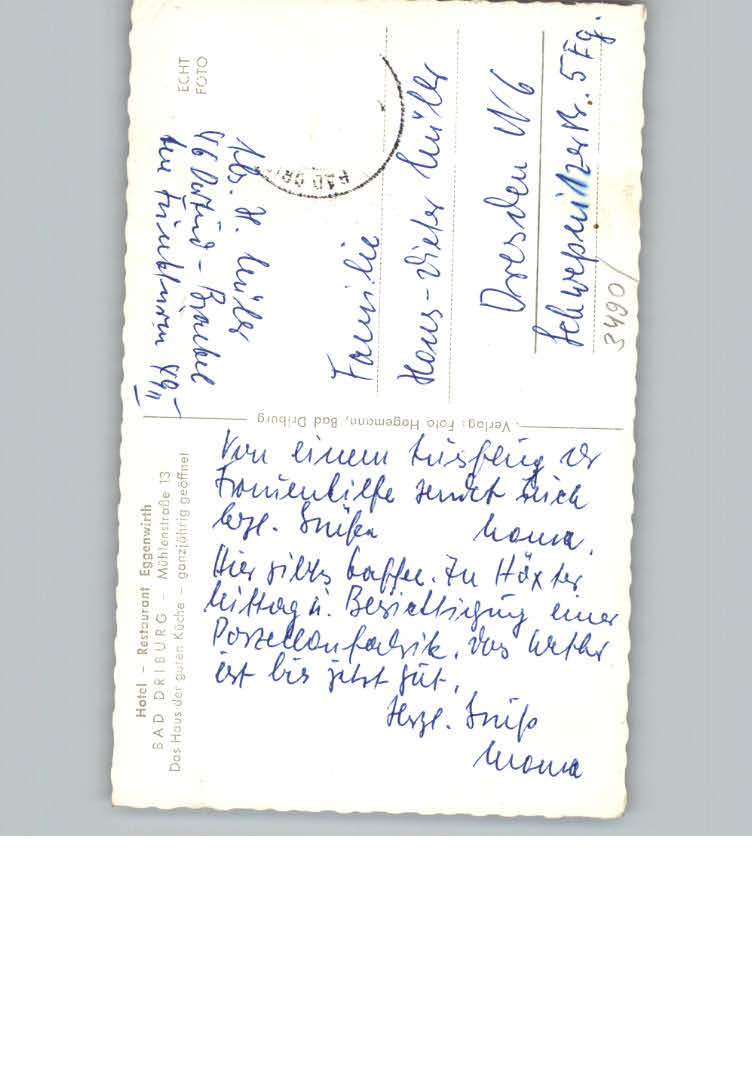 Hotel – Restaurant Eggenwirth
BAD DRIBURG – Mühlenstraße 13
Das Haus der guten Küche – ganzjährig geöffnet
Von einem Ausflug der
Frauenhilfe sendet Euch
herzl. Grüße Mama.
Hier gibts Kaffee. In Höxter
Mittag u. Besichtigung einer
Porzellanfabrik. Das Wetter
ist bis jetzt gut.
Herzl. Grüße
Mama
Verlag: Foto Hagemann, Bad Driburg
ECHT
FOTO
Abs. H. Müller
46 Dortmd – Brackel
BAD DRI
Familie
Hans-Dieter Müller
Dresden N 6
Schwepnitzerstr. 5 Eg.
3490/